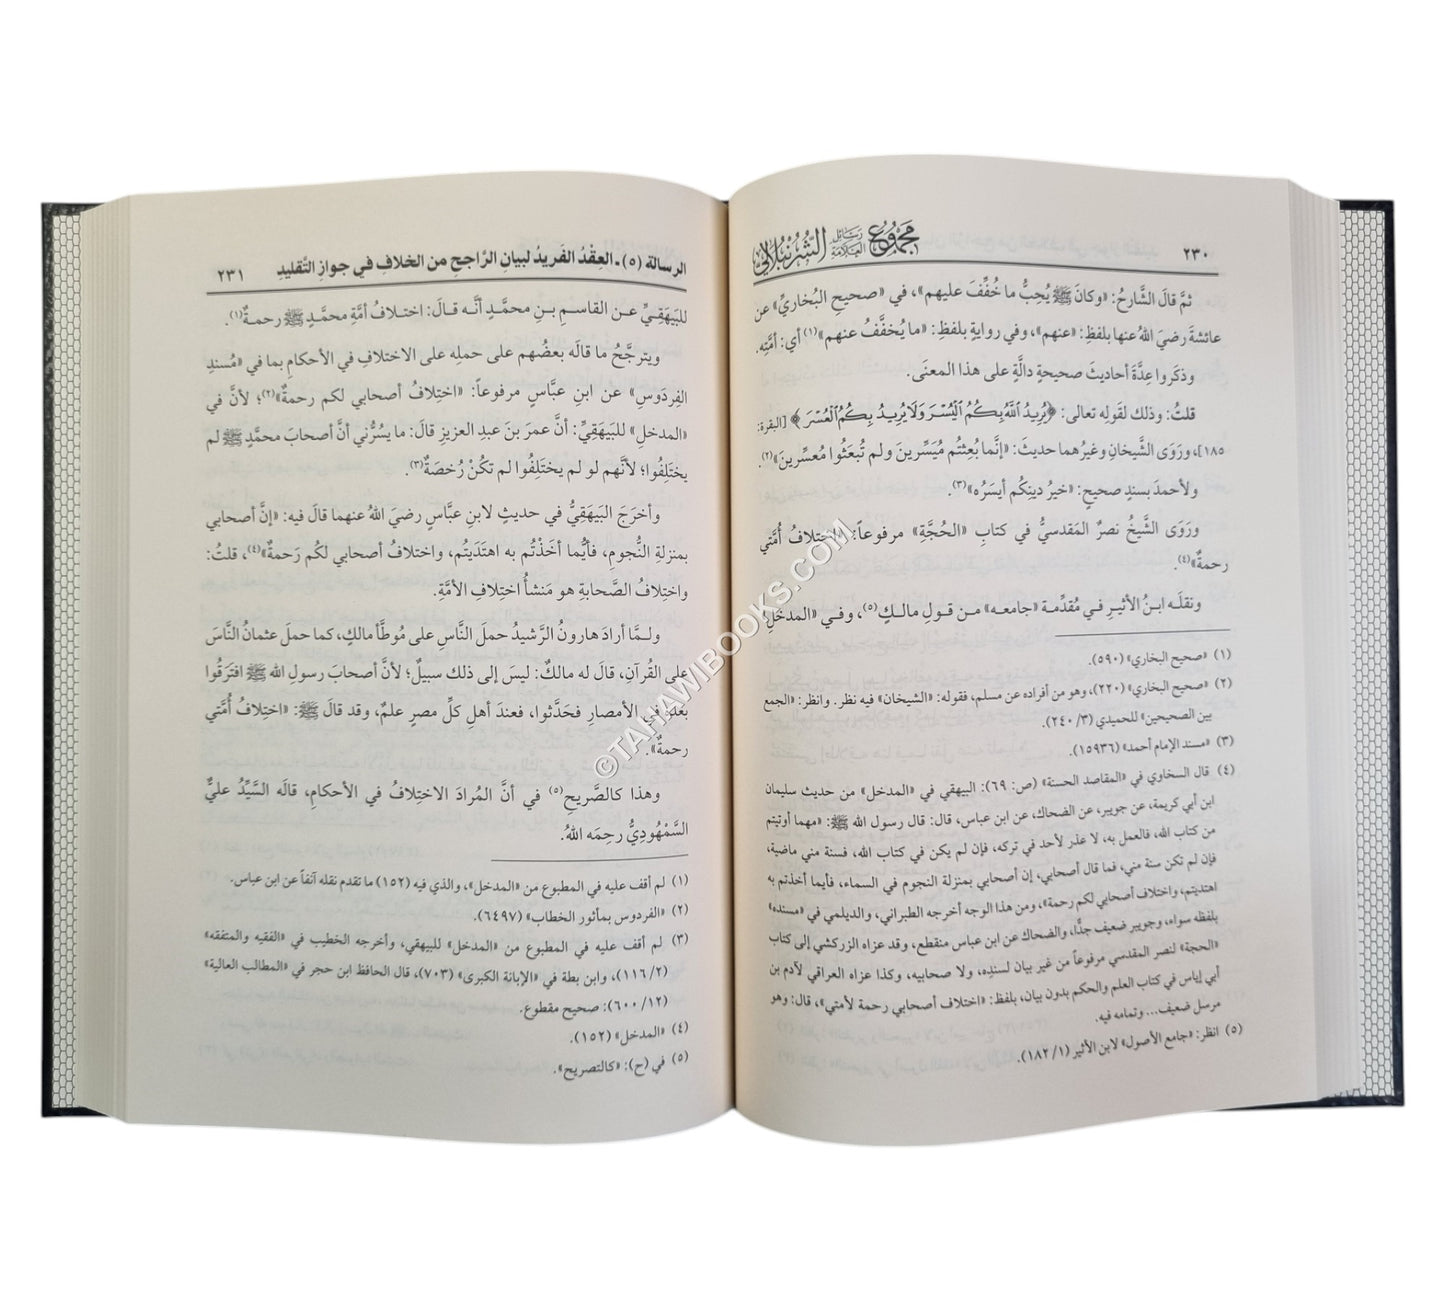 ٢٣٠
مجموع رسائل العلامة الشرنبلالي
ثمَّ قالَ الشَّارحُ: «وكانَ ﷺ يُحِبُّ ما خُفِّفَ عليهم»، في «صحيحِ البُخاريِّ» عن
عائشةَ رضيَ اللهُ عنها بلفظِ: «عنهم»، وفي روايةٍ بلفظِ: «ما يُخفَّفُ عنهم»(١) أي: أمَّتِه.
وذكَروا عِدَّةَ أحاديثَ صحيحةٍ دالَّةٍ على هذا المعنَى.
قلتُ: وذلك لقَولِه تعالى: ﴿يُرِيدُ ٱللَّهُ بِكُمُ ٱلْيُسْرَ وَلَا يُرِيدُ بِكُمُ ٱلْعُسْرَ﴾ [البقرة:
١٨٥]، ورَوَى الشَّيخانِ وغيرُهما حديثَ: «إنَّما بُعِثتُم مُيَسِّرينَ ولم تُبعَثُوا مُعسِّرينَ»(٢).
ولأحمدَ بسندٍ صحيحٍ: «خيرُ دينِكُم أيسَرُه»(٣).
ورَوَى الشَّيخُ نصرٌ المَقدسيُّ في كتابِ «الحُجَّةِ» مرفوعاً: «اختلافُ أُمَّتي
رحمةٌ»(٤).
ونقلَـه ابـنُ الأثيـرِ فـي مُقدِّمـة «جامعـه» مـن قـولِ مالـكٍ(٥)، وفـي «المدخَلِ»
(١) «صحيح البخاري» (٥٩٠).
(٢) «صحيح البخاري» (٢٢٠)، وهو من أفراده عن مسلم، فقوله: «الشيخان» فيه نظر. وانظر: «الجمع
بين الصحيحين» للحميدي (٣/ ٢٤٠).
(٣) «مسند الإمام أحمد» (١٥٩٣٦).
(٤) قال السخاوي في «المقاصد الحسنة» (ص: ٦٩): البيهقي في «المدخل» من حديث سليمان
ابن أبي كريمة، عن جويبر، عن الضحاك، عن ابن عباس، قال: قال رسول الله ﷺ: «مهما أوتيتم
من كتاب الله، فالعمل به، لا عذر لأحد في تركه، فإن لم يكن في كتاب الله، فسنة مني ماضية،
فإن لم تكن سنة مني، فما قال أصحابي، إن أصحابي بمنزلة النجوم في السماء، فأيما أخذتم به
اهتديتم، واختلاف أصحابي لكم رحمة»، ومن هذا الوجه أخرجه الطبراني، والديلمي في «مسنده»
بلفظه سواء، وجويبر ضعيف جدًّا، والضحاك عن ابن عباس منقطع، وقد عزاه الزركشي إلى كتاب
«الحجة» لنصر المقدسي مرفوعاً من غير بيان لسنده، ولا صحابيه، وكذا عزاه العراقي لآدم بن
أبي إياس في كتاب العلم والحكم بدون بيان، بلفظ: «اختلاف أصحابي رحمة لأمتي»، قال: وهو
مرسل ضعيف... وتمامه فيه.
(٥) انظر: «جامع الأصول» لابن الأثير (١/ ١٨٢).
الرسالة (٥) ـ العِقْدُ الفَريدُ لبيانِ الرَّاجحِ من الخلافِ في جوازِ التَّقليدِ
٢٣١
للبَيهَقِـيِّ عـن القاسـمِ بـنِ محمَّـدٍ أنَّـه قـالَ: اختـلافُ أمَّةِ محمَّدٍ ﷺ رحمـةٌ(١).
ويترجَّحُ ما قالَه بعضُهم على حملِه على الاختلافِ في الأحكامِ بما في «مُسندِ
الفِردَوسِ» عن ابنِ عبَّاسٍ مرفوعاً: «اختِلافُ أصحابي لكم رحمةٌ»(٢)؛ لأنَّ في
«المدخلِ» للبَيهَقِيِّ: أنَّ عمرَ بنَ عبدِ العزيزِ قالَ: ما يسُرُّني أنَّ أصحابَ محمَّدٍ ﷺ لم
يختَلِفُوا؛ لأنَّهم لو لم يختَلِفُوا لم تكُنْ رُخصَةٌ(٣).
وأخرَجَ البَيهَقِيُّ في حديثٍ لابنِ عبَّاسٍ رضيَ اللهُ عنهما قالَ فيه: «إنَّ أصحابي
بمنزلةِ النُّجومِ، فأيُّما أخَذْتُم به اهتَدَيتُم، واختلافُ أصحابي لكُم رَحمةٌ»(٤)، قلتُ:
واختِلافُ الصَّحابةِ هو مَنشأُ اختِلافِ الأمَّةِ.
ولـمَّا أرادَ هارونُ الرَّشيدُ حملَ النَّاسِ على مُوطَّأ مالكٍ، كما حملَ عثمانُ النَّاسَ
على القُرآنِ، قالَ له مالكٌ: ليسَ إلى ذلك سبيلٌ؛ لأنَّ أصحابَ رسولِ اللهِ ﷺ افتَرَقُوا
بعدَه في الأمصارِ فحَدَّثوا، فعندَ أهلِ كلِّ مصرٍ علمٌ، وقد قالَ ﷺ: «اختِلافُ أُمَّتي
رحمةٌ».
وهذا كالصَّريحِ(٥) في أنَّ المُرادَ الاختِلافُ في الأحكامِ، قالَه السَّيِّدُ عليٌّ
السَّمْهُوديُّ رحِمَه اللهُ.
(١) لم أقف عليه في المطبوع من «المدخل»، والذي فيه (١٥٢) ما تقدم نقله آنفاً عن ابن عباس.
(٢) «الفردوس بمأثور الخطاب» (٦٤٩٧).
(٣) لم أقف عليه في المطبوع من «المدخل» للبيهقي، وأخرجه الخطيب في «الفقيه والمتفقه»
(٢/ ١١٦)، وابن بطة في «الإبانة الكبرى» (٧٠٣)، قال الحافظ ابن حجر في «المطالب العالية»
(١٢/ ٦٠٠): صحيح مقطوع.
(٤) «المدخل» (١٥٢).
(٥) في (ح): «كالتصريح».
©TAHAWIBOOKS.COM